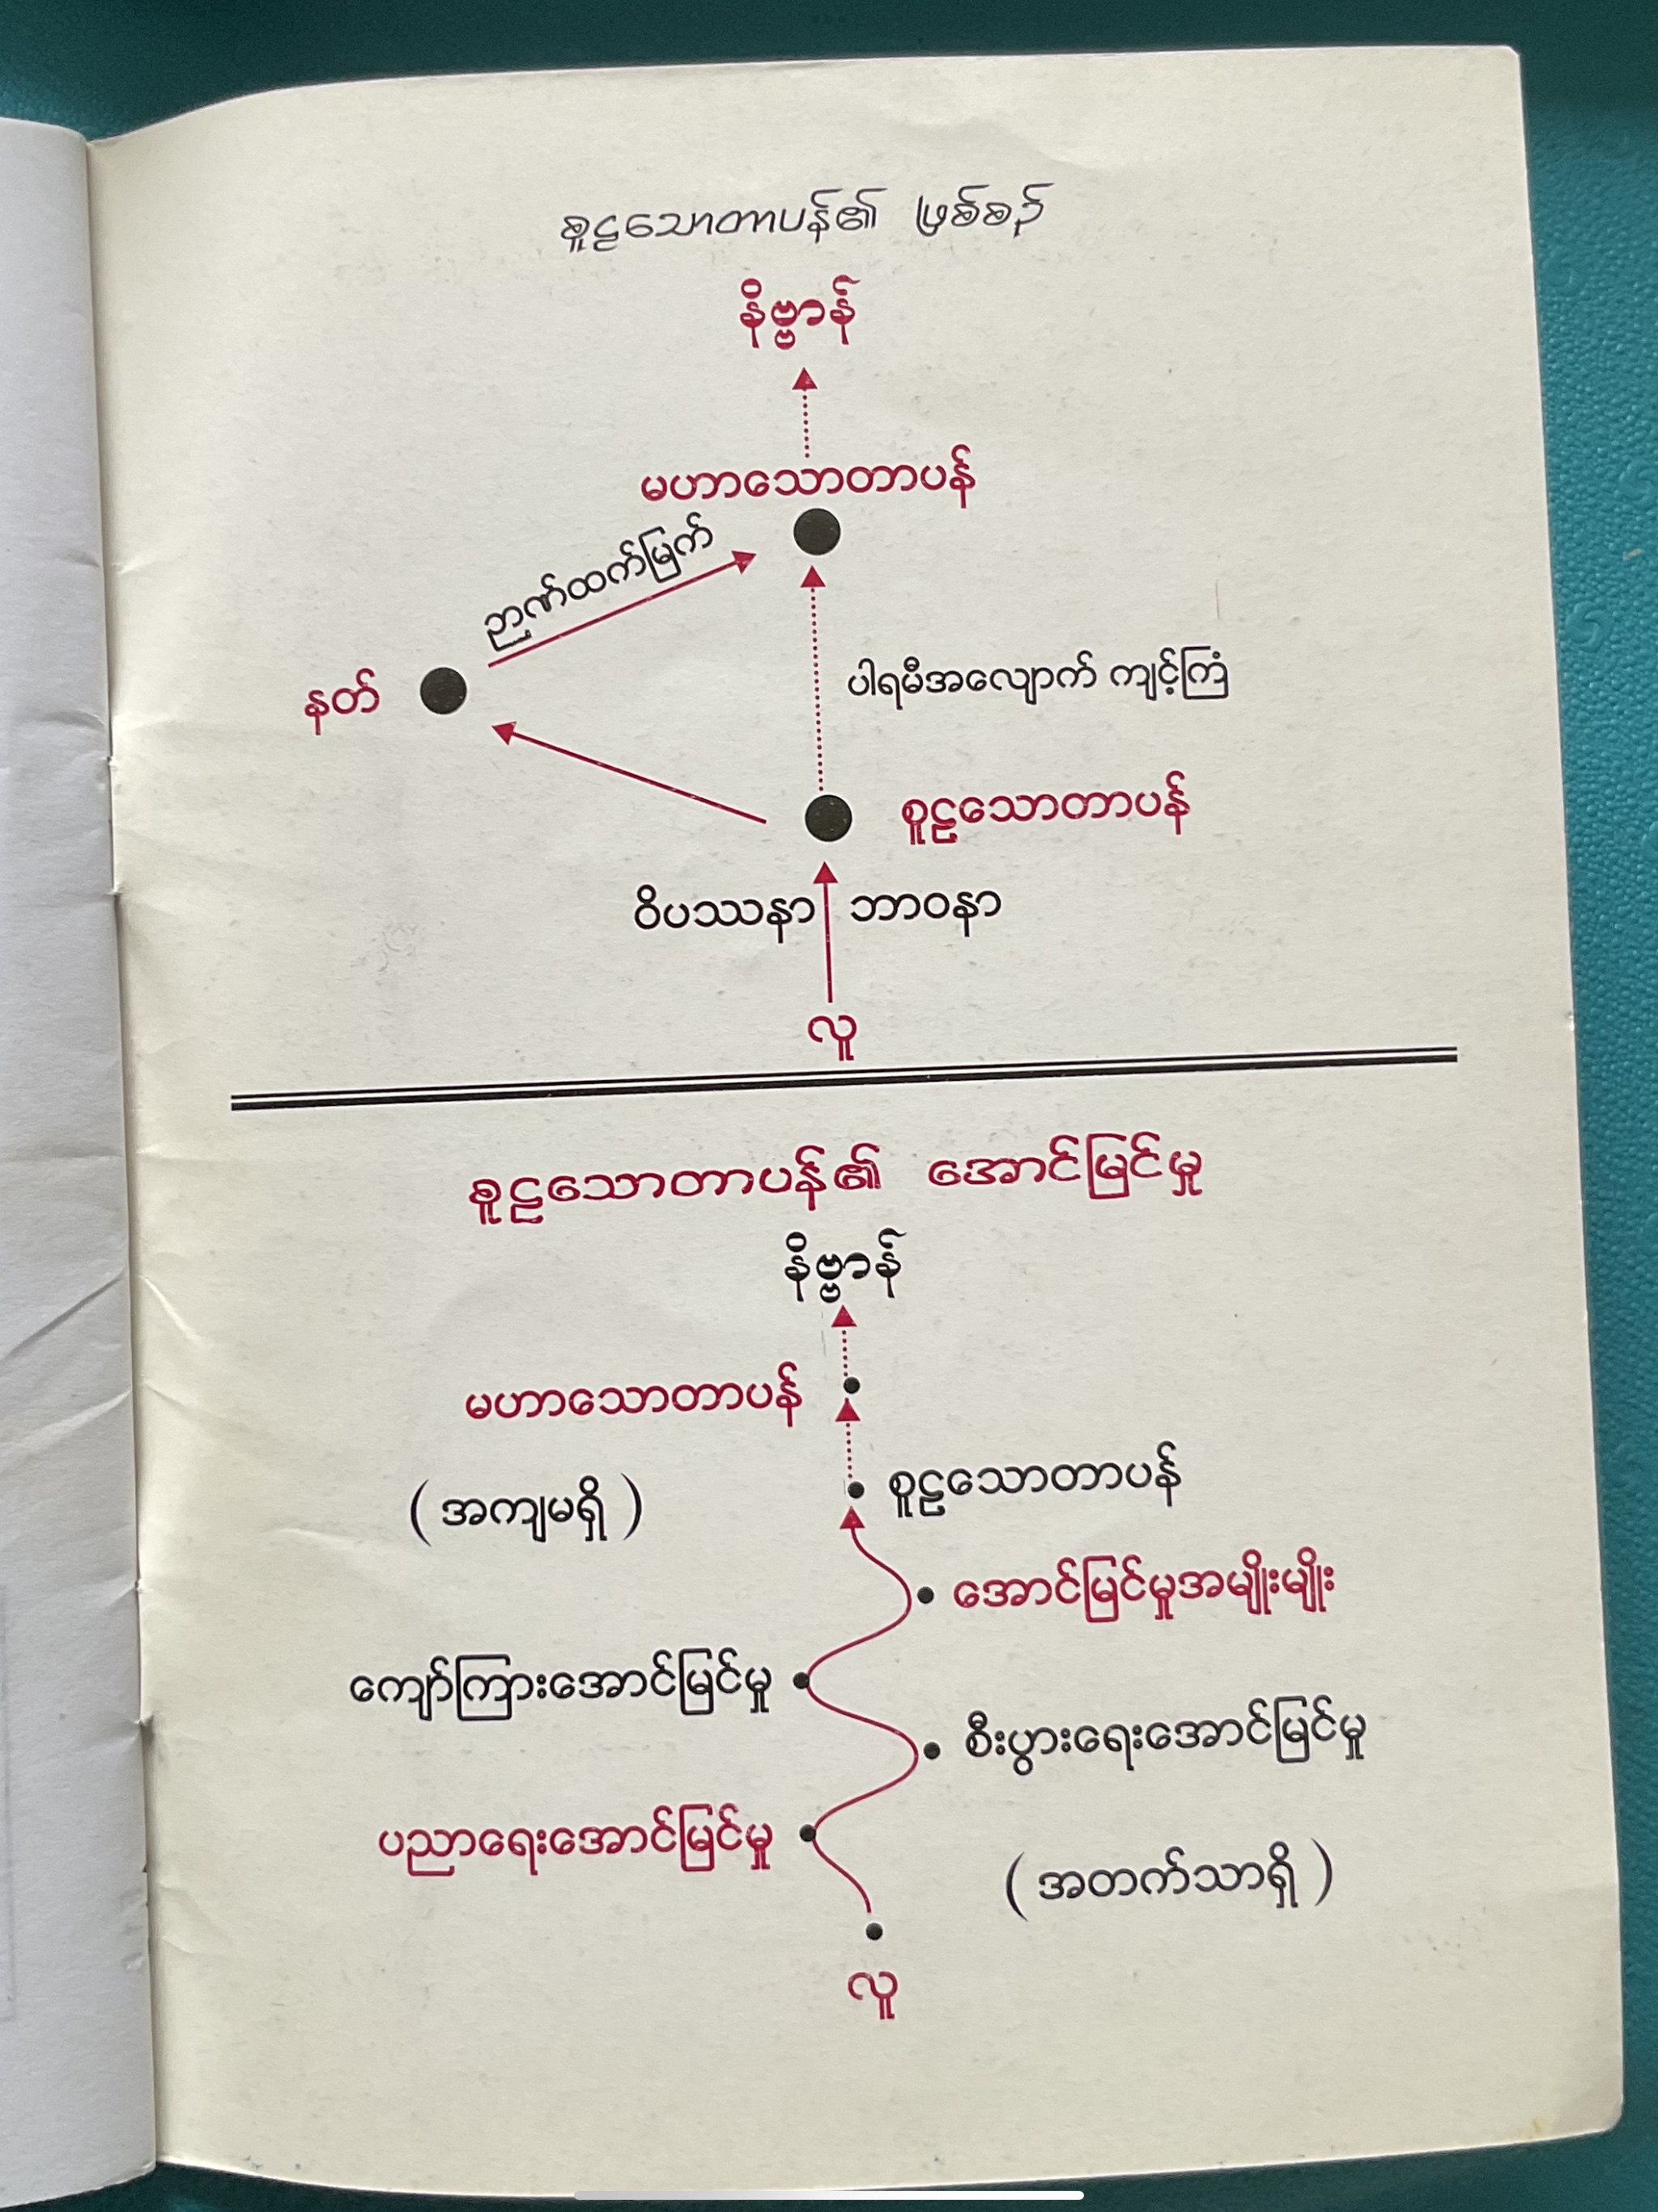 စူဠသောတာပန်၏ ဖြစ်စဉ်
နိဗ္ဗာန်
မဟာသောတာပန်
ဉာဏ်ထက်မြက်
နတ်
ပါရမီအလျောက် ကျင့်ကြံ
စူဠသောတာပန်
ဝိပဿနာ ဘာဝနာ
လူ
စူဠသောတာပန်၏ အောင်မြင်မှု
နိဗ္ဗာန်
မဟာသောတာပန်
စူဠသောတာပန်
( အကျမရှိ )
အောင်မြင်မှုအမျိုးမျိုး
ကျော်ကြားအောင်မြင်မှု
စီးပွားရေးအောင်မြင်မှု
ပညာရေးအောင်မြင်မှု
( အတက်သာရှိ )
လူ